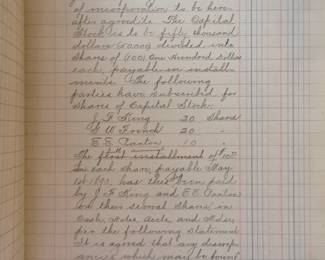 of incorporation to be here
after agreed to. The Capital
Stock is to be fifty thousand
dollars divided into
Shares of (100) One Hundred Dollars
each, payable in install-
ments. The following
parties have subscribed for
Shares of Capital Stock.
J F King 20 Shares
G W French 20 "
E.E. Caxton 10 "
The first installment of
on each share, payable May
1st has been paid
by J F King and E E Caxton
on their several Shares in
Cash, Notes, Accts, and Mdse,
per the following statement
It is agreed that any discrep-
ancies which may be found